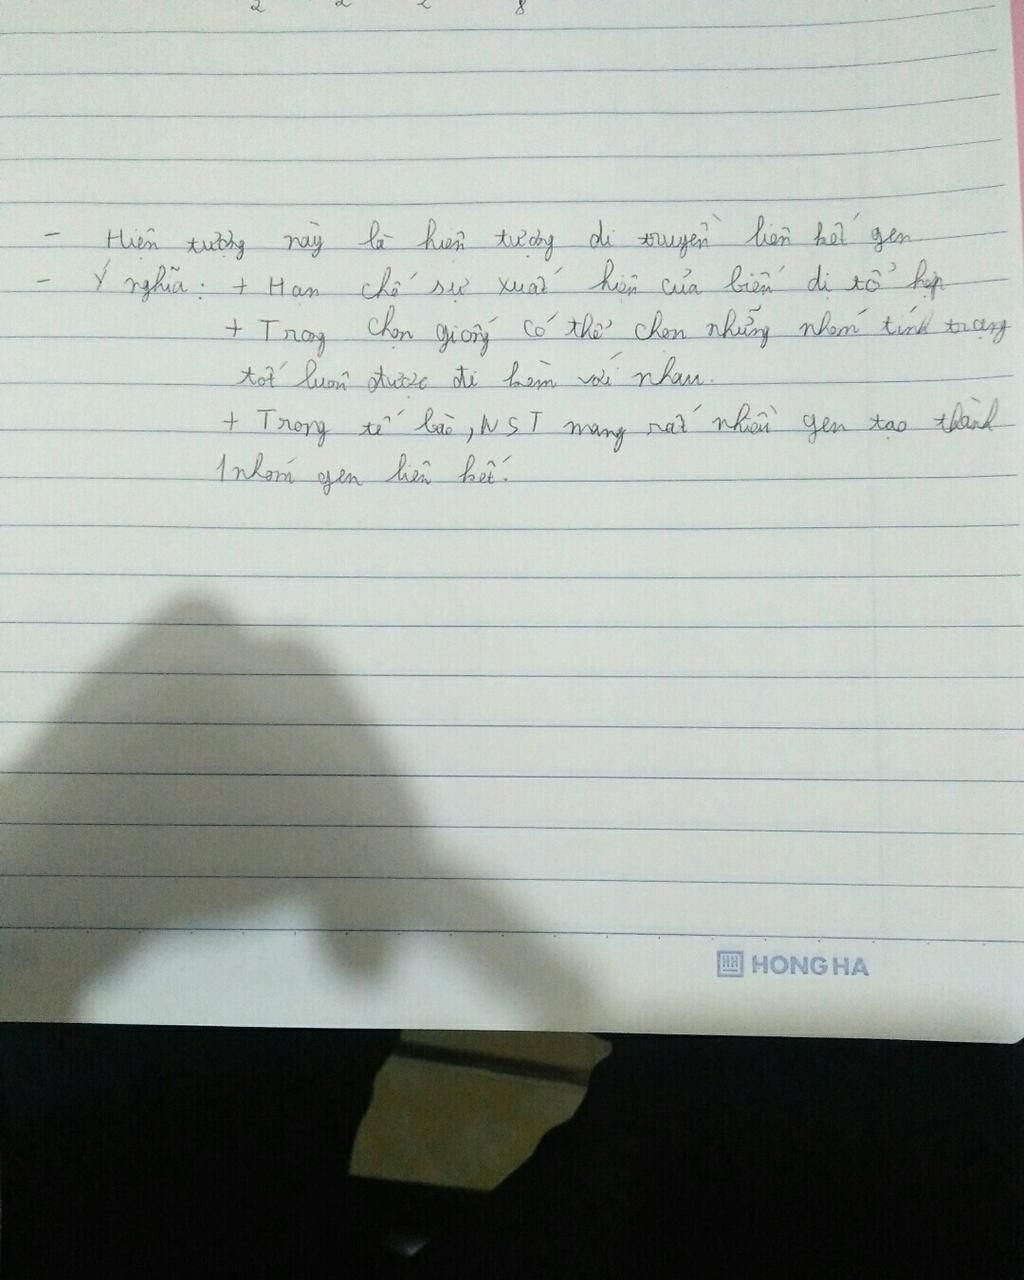 2 2 2 8
- Hiện tượng này là hiện tượng di truyền liên kết gen
- Ý nghĩa: + Hạn chế sự xuất hiện của biến dị tổ hợp
+ Trong chọn giống có thể chọn những nhóm tính trạng
tốt luôn được đi kèm với nhau.
+ Trong tế bào, NST mang rất nhiều gen tạo thành
1 nhóm gen liên kết.
HONG HA